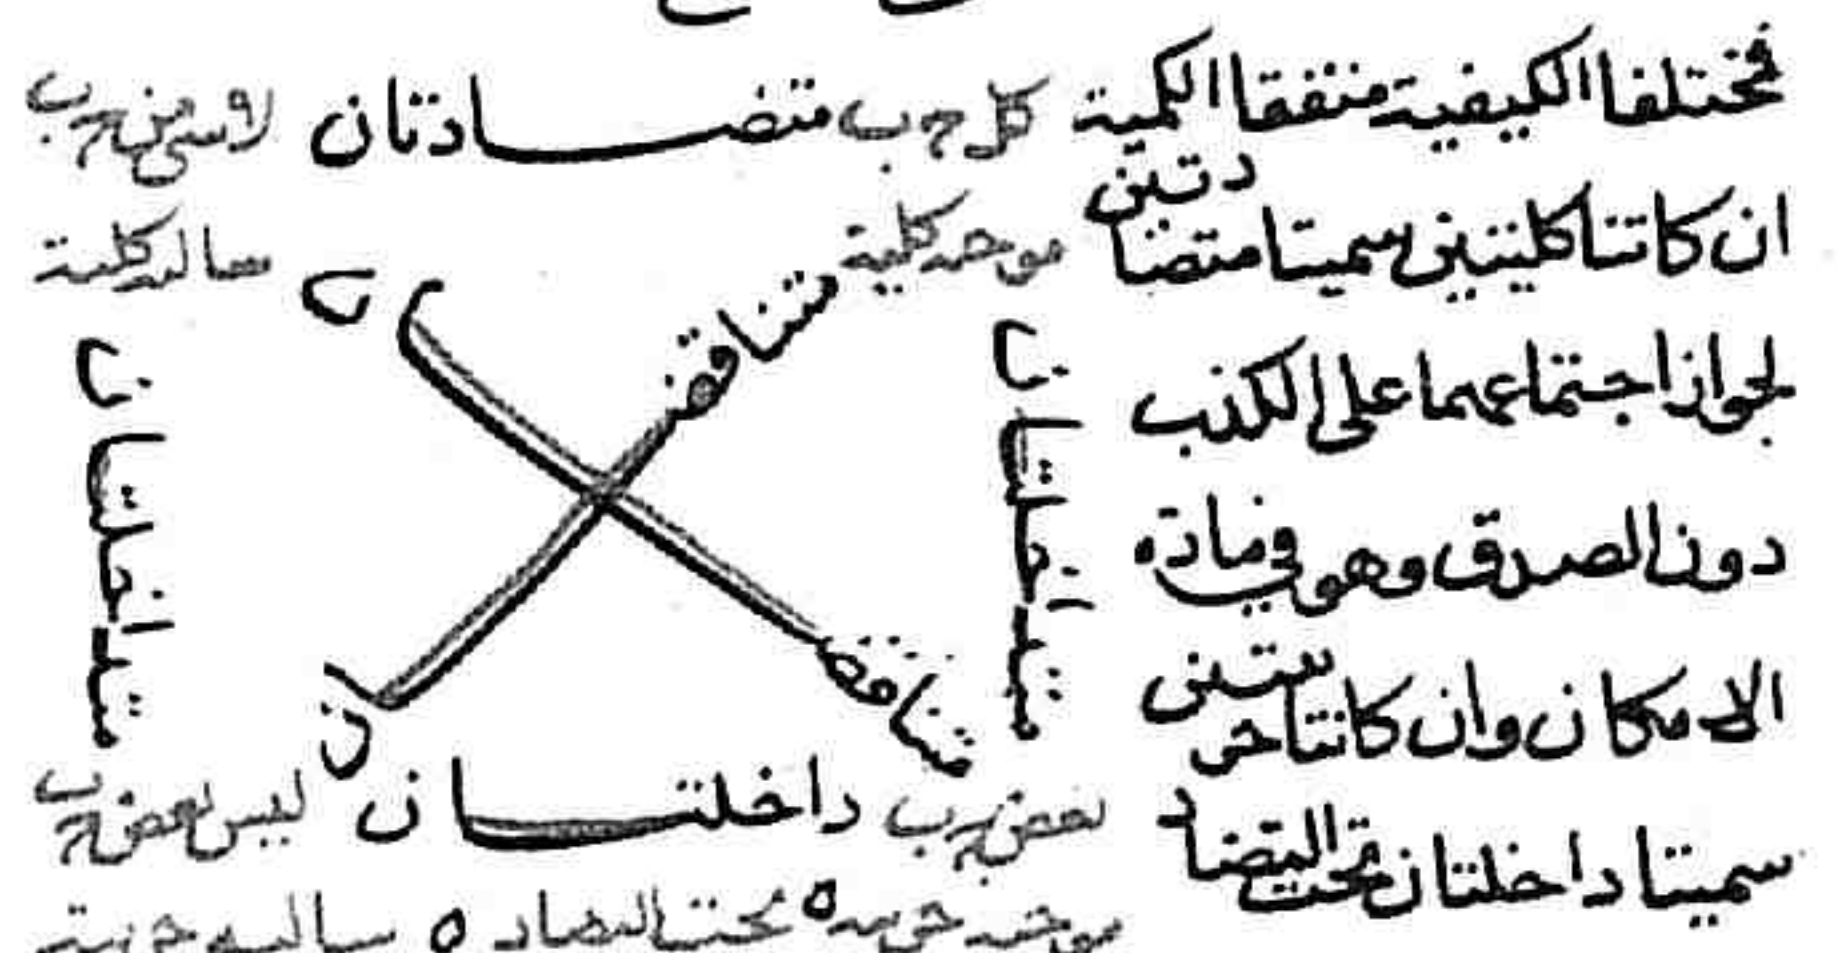 فمختلفا الكيفية متفقا الكمية
ان كانتا كليتين سميتا متضادتين
لجواز اجتماعهما على الكذب
دون الصدق وهو في مادة
الامكان وان كانتا جزئيتين
سميتا داخلتان تحت التضاد
كل ج ب متضادتان لا شئ من ج ب
موجبه كلية سالبه كلية
متناقضان
متناقضان
متداخلتان
متداخلتان
بعض ج ب داخلتان ليس بعض ج ب
موجبه جزييه تحت التضاد سالبه جزييه